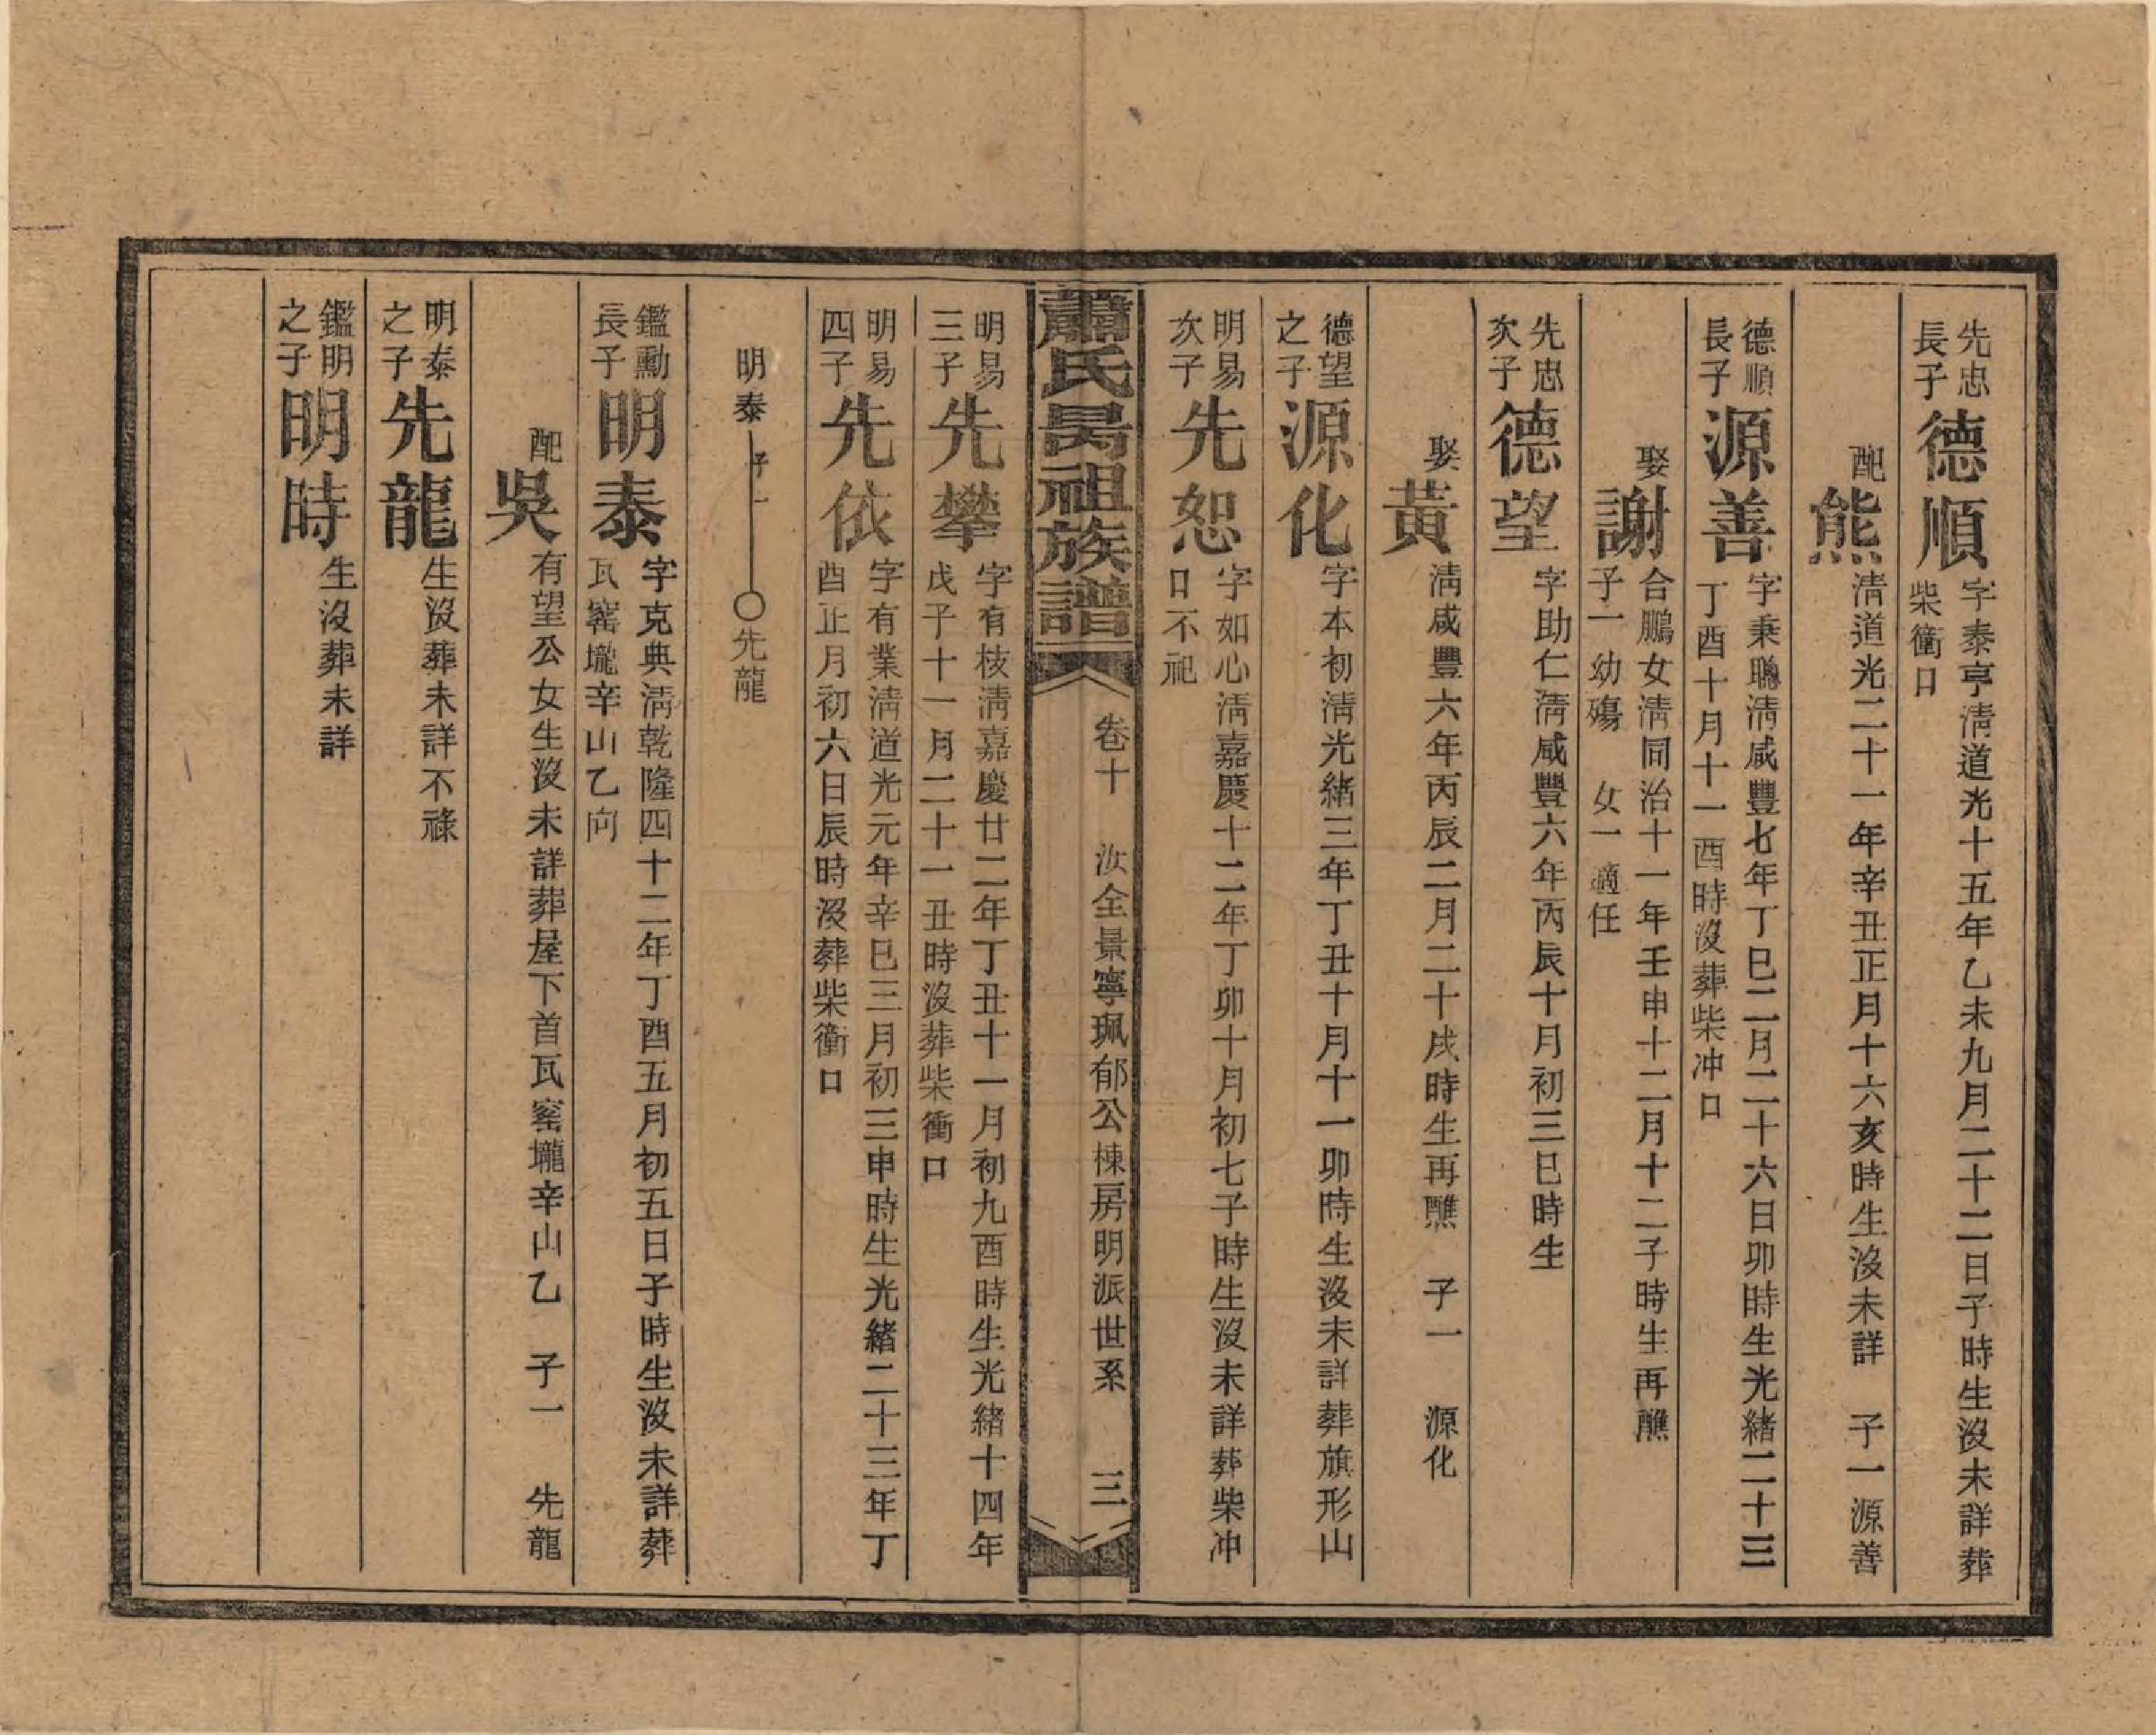 先忠
長子
德順
字泰亨淸道光十五年乙未九月二十二日子時生沒未詳葬
柴衝口
配
熊
淸道光二十一年辛丑正月十六亥時生沒未詳 子一源善
德順
長子
源善
字秉聰淸咸豐七年丁巳二月二十六日卯時生光緒二十三
丁酉十月十一酉時沒葬柴冲口
娶
謝
合鵬女淸同治十一年壬申十二月十二子時生再醮
子一幼殤 女一適任
先忠
次子
德望
字助仁淸咸豐六年丙辰十月初三巳時生
娶
黃
淸咸豐六年丙辰二月二十戌時生再醮 子一 源化
德望
之子
源化
字本初淸光緒三年丁丑十月十一卯時生沒未詳葬旗形山
明易
次子
先恕
字如心淸嘉慶十二年丁卯十月初七子時生沒未詳葬柴冲
口不祀
蕭氏昺祖族譜
卷十 汝全景寧珮郁公棟房明派世系 三
明易
三子
先攀
字有枝淸嘉慶廿二年丁丑十一月初九酉時生光緒十四年
戊子十一月二十一丑時沒葬柴衝口
明易
四子
先依
字有業淸道光元年辛巳三月初三申時生光緒二十三年丁
酉正月初六日辰時沒葬柴衝口
明泰 子一 〇先龍
鑑勳
長子
明泰
字克典淸乾隆四十二年丁酉五月初五日子時生沒未詳葬
瓦窰壠辛山乙向
配
吳
有望公女生沒未詳葬屋下首瓦窰壠辛山乙 子一 先龍
明泰
之子
先龍
生沒葬未詳不祿
鑑明
之子
明時
生沒葬未詳